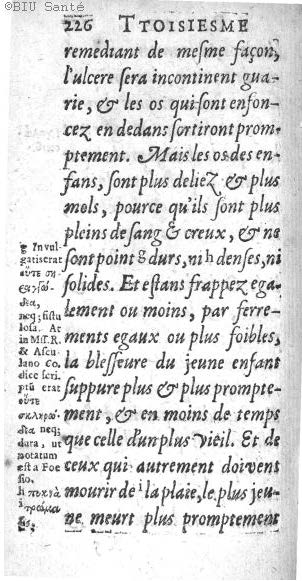 ©BIU Santé
226 TTOISIESME
remediant de mesme façon,
l'ulcere sera incontinent gua-
rie, & les os qui sont enfon-
cez en dedans sortiront prom-
ptement. Mais les os des en-
fans, sont plus deliez & plus
mols, pource qu'ils sont plus
pleins de sang & creux, & ne
sont point g durs, ni h denses, ni
solides. Et estans frappez ega-
lement ou moins, par ferre-
ments egaux ou plus foibles,
la blessure du jeune enfant
suppure plus & plus prompte-
ment, & en moins de temps
que celle d'un plus vieil. Et de
ceux qui autrement doivent
mourir de i la plaie, le plus jeu-
ne meurt plus promptement
g In vul-
gatis erat
οὔτε ση-
neq; fistu
losa. At
in Mss. R.
& Ascu-
lano co-
dice scri
ptū erat
οὔτε
σκληρώ-
δεα neq;
dura, ut
notatum
est a Foe
sio.
h πυκνὰ
i τρώμα